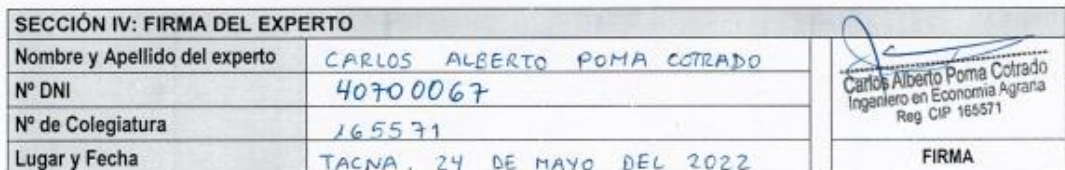 SECCIÓN IV: FIRMA DEL EXPERTO
Nombre y Apellido del experto CARLOS ALBERTO POMA COTRADO
Nº DNI 40700067
Nº de Colegiatura 165571
Lugar y Fecha TACNA, 24 DE MAYO DEL 2022
Carlos Alberto Poma Cotrado
Ingeniero en Economia Agraria
Reg. CIP 165571
FIRMA